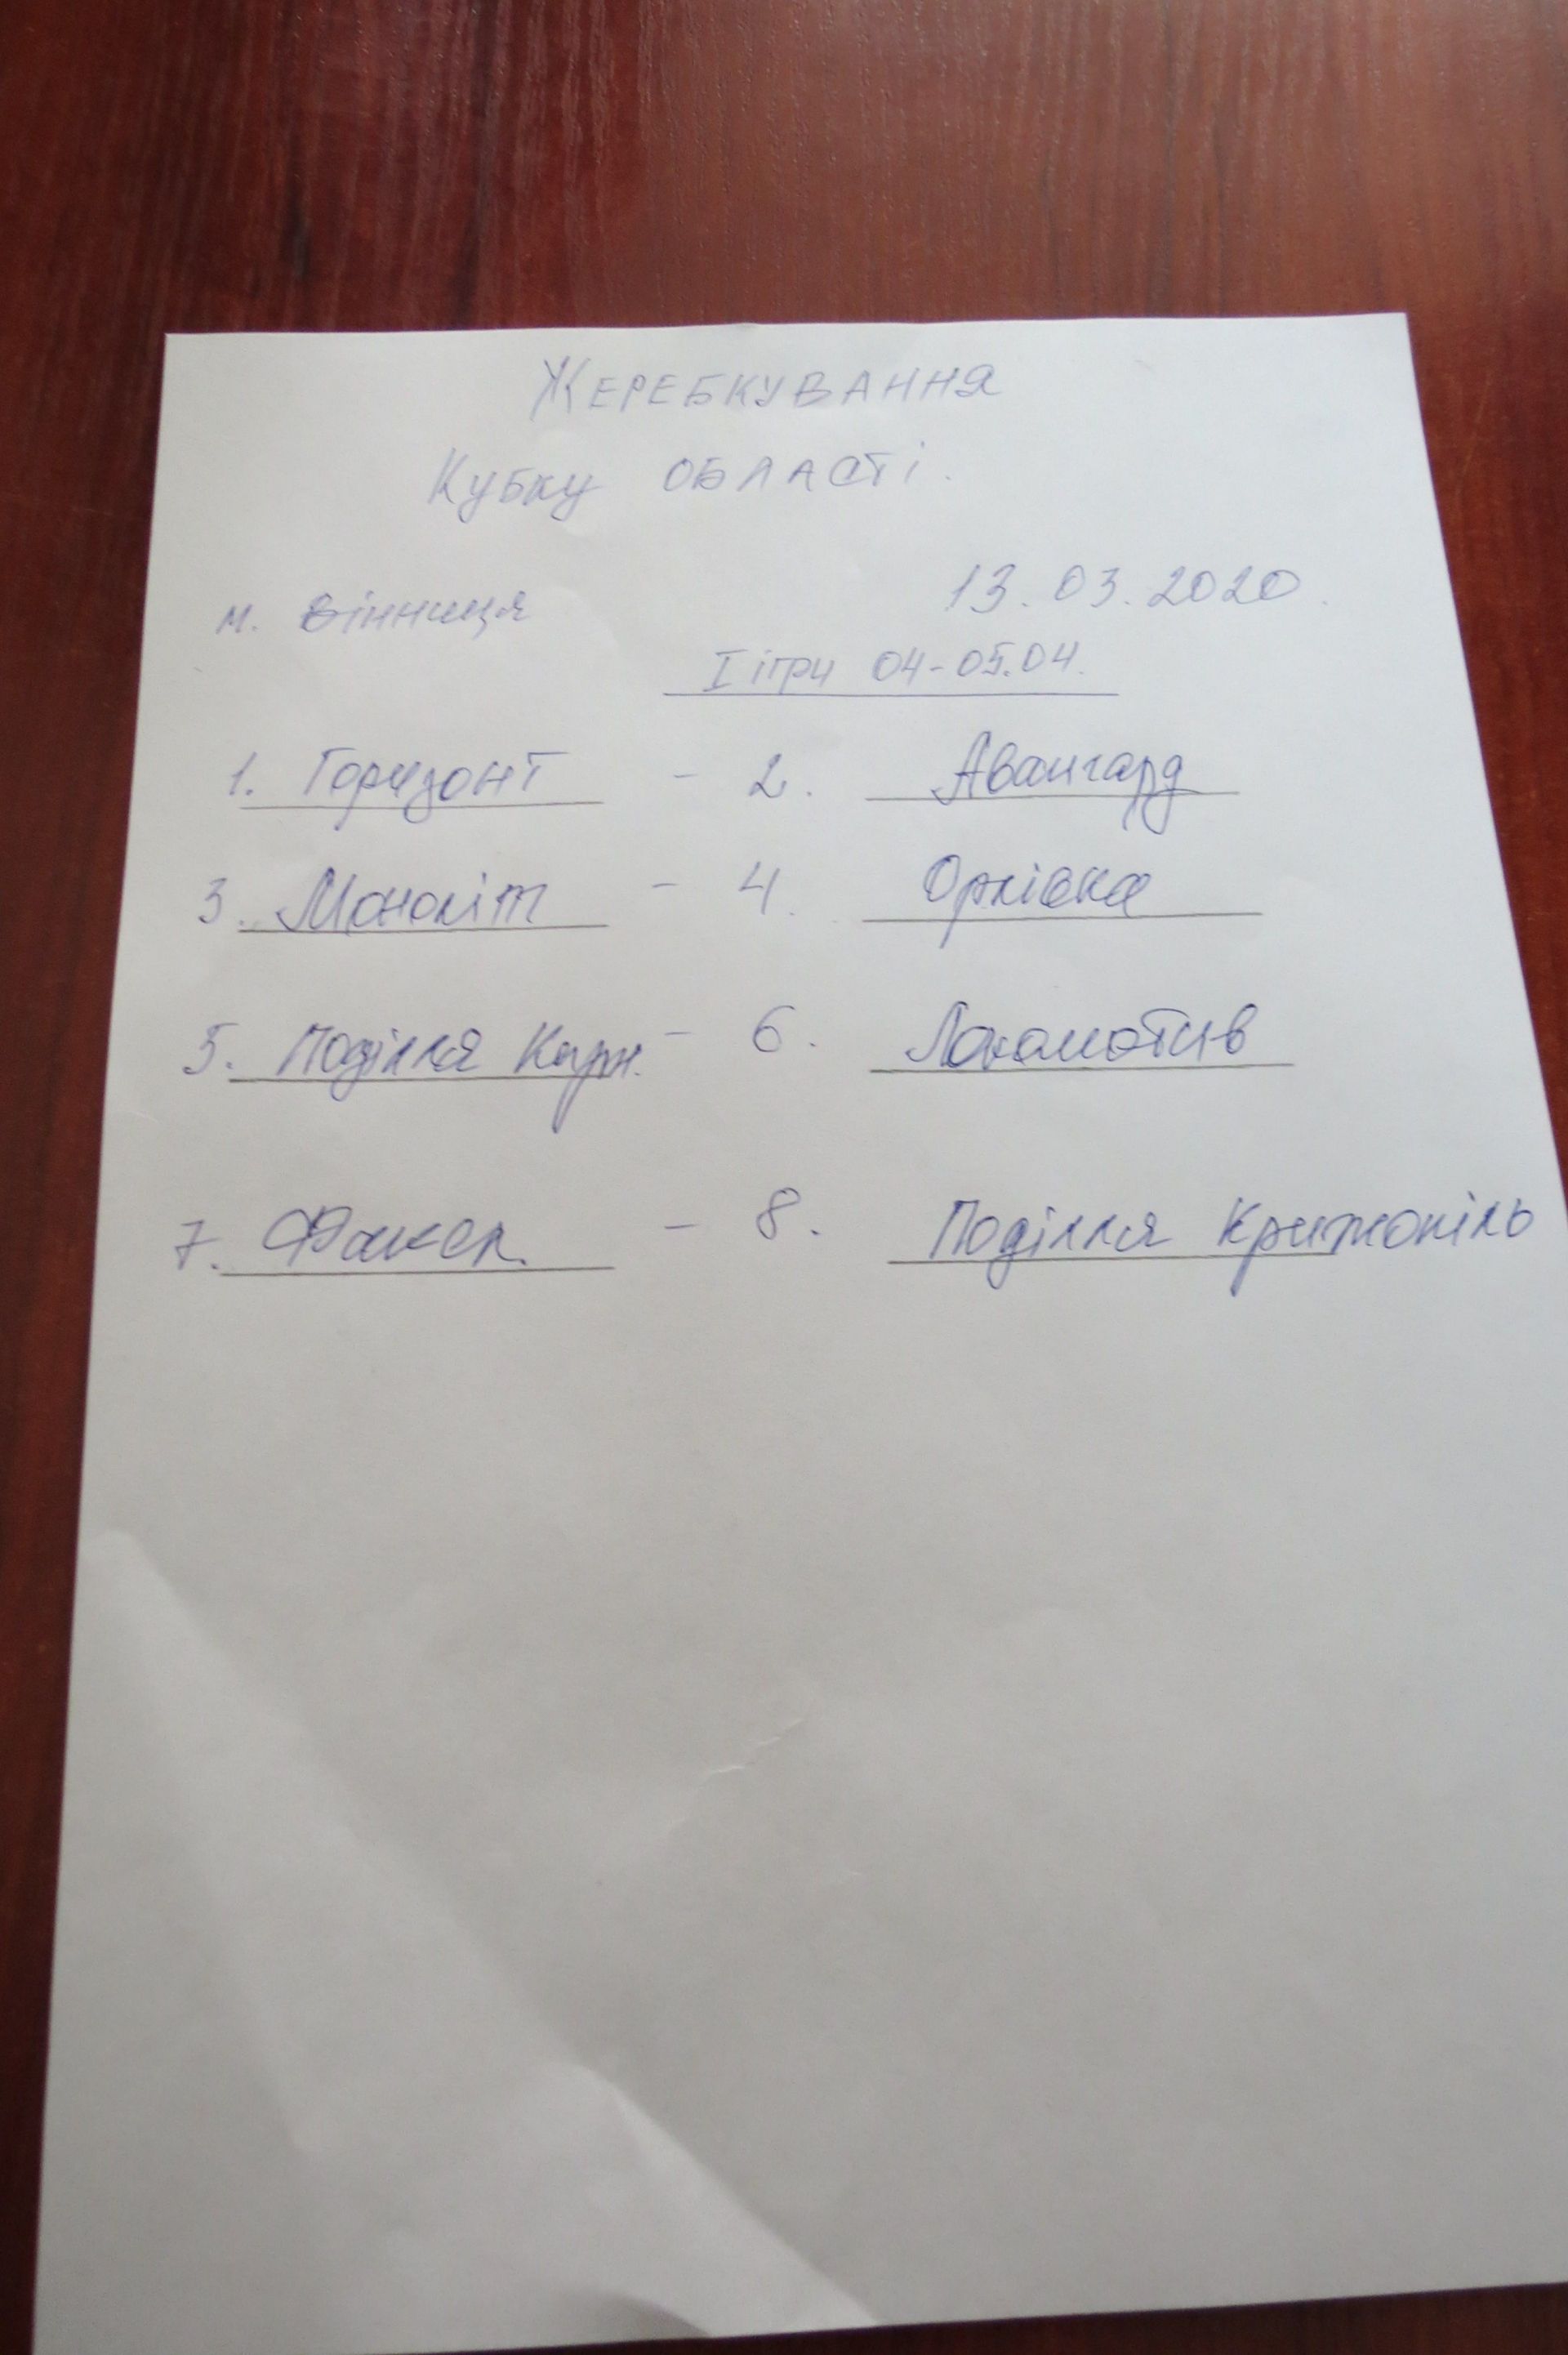 Жеребкування
Кубку області.
м. Вінниця 13.03.2020.
І ігри 04-05.04.
1. Горизонт - 2. Авангард
3. Моноліт - 4. Орлівка
5. Поділля Кирн. - 6. Локомотив
7. Факел. - 8. Поділля Крижопіль